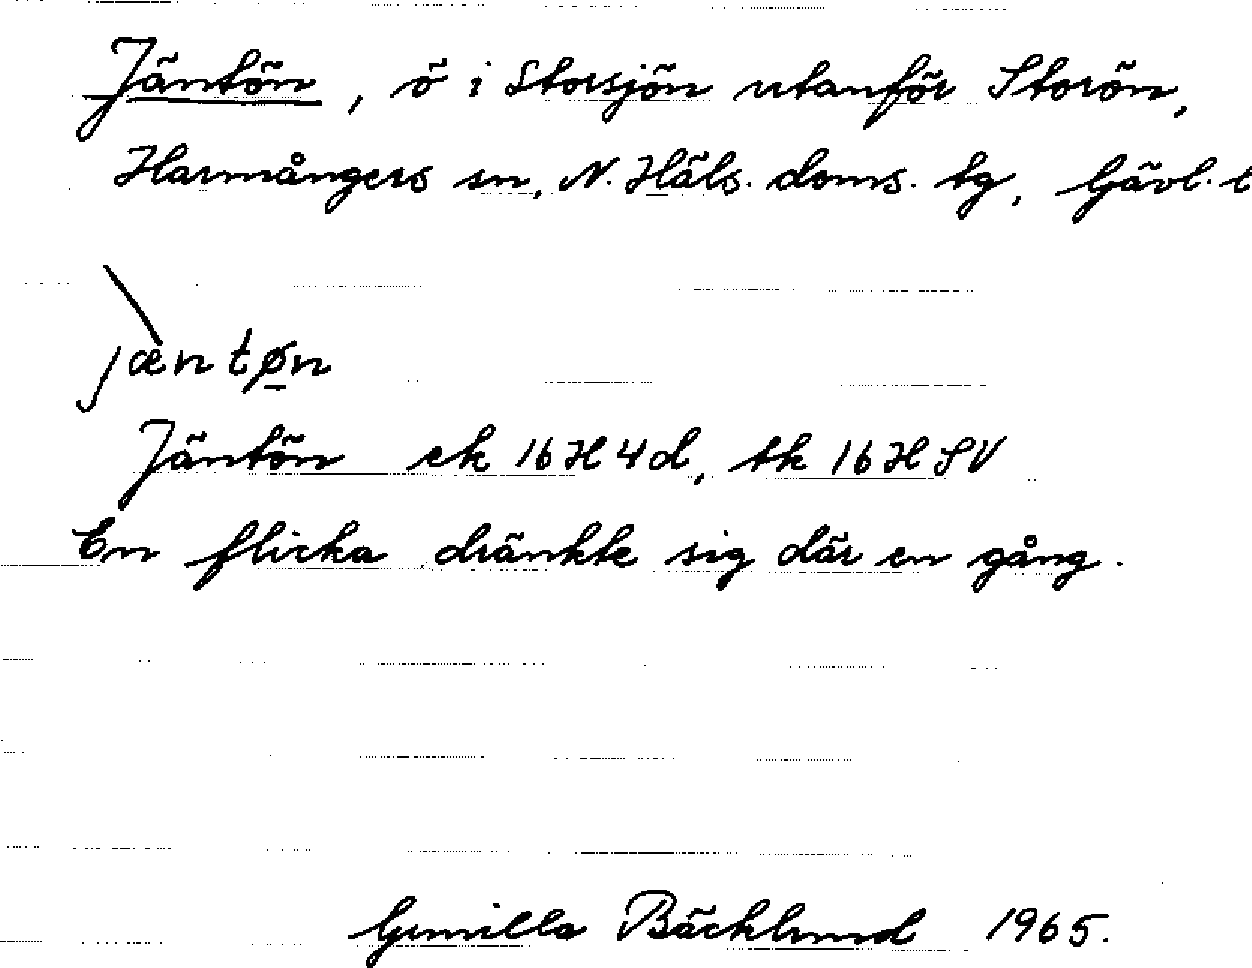 Jäntön, ö i Storsjön utanför Storön,
Harmångers sn, N. Häls. doms. tg, Gävl. l
jæntøn
Jäntön ek 16H4d, tk 16HSV
En flicka dränkte sig där en gång.
Gunilla Bäcklund 1965.